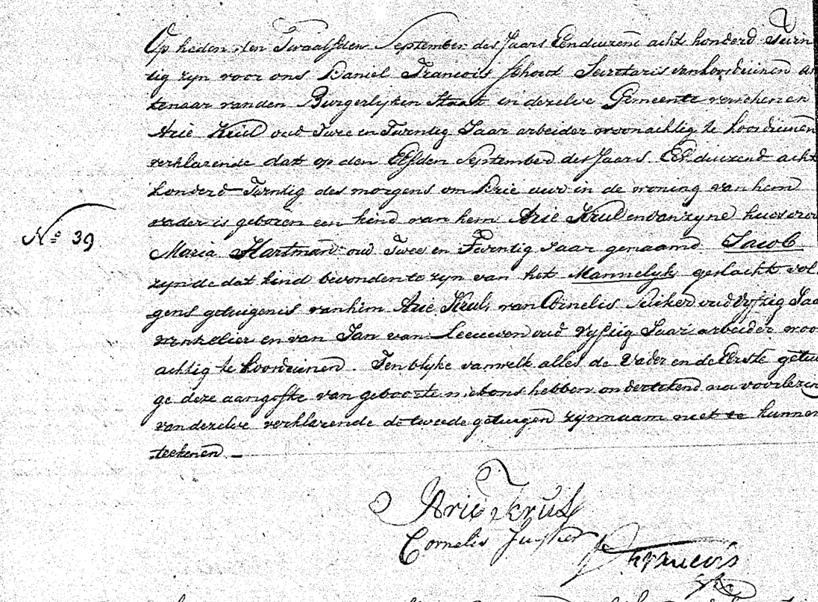 Op heden den Twaalfden September des Jaars Eenduizend acht honderd Twin
tig zyn voor ons Daniel Francois Schout Secretaris van
tenaar van den Burgerlyken Staat in dezelve Gemeente verschenen
Arie Krul oud Twee en Twentig Jaar arbeider woonachtig te
verklarende dat op den Elfden September des Jaars Eenduizend acht
honderd Twintig des morgens om Drie uur in de woning van hem
vader is geboren een kind van hem Arie Krul en van zyne
Maria Hartman oud Twee en Twentig Jaar genaamd Jacob
zynde dat kind bevonden te zyn van het Mannelyk geslacht vol
gens getuigenis van hem Arie Krul, van Cornelis oud Vyftig Jaar
en van Jan van Leeuwen oud Vyftig Jaar arbeider woon
achtig te Ten blyke van welk alles de Vader en de Eerste getui
ge deze aangifte van geboorte met ons hebben ondertekend na voorlezing
van dezelve verklarende de tweede getuigen zyn naam niet te kunnen
teekenen
No. 39
Arie Krul
Cornelis
Francois